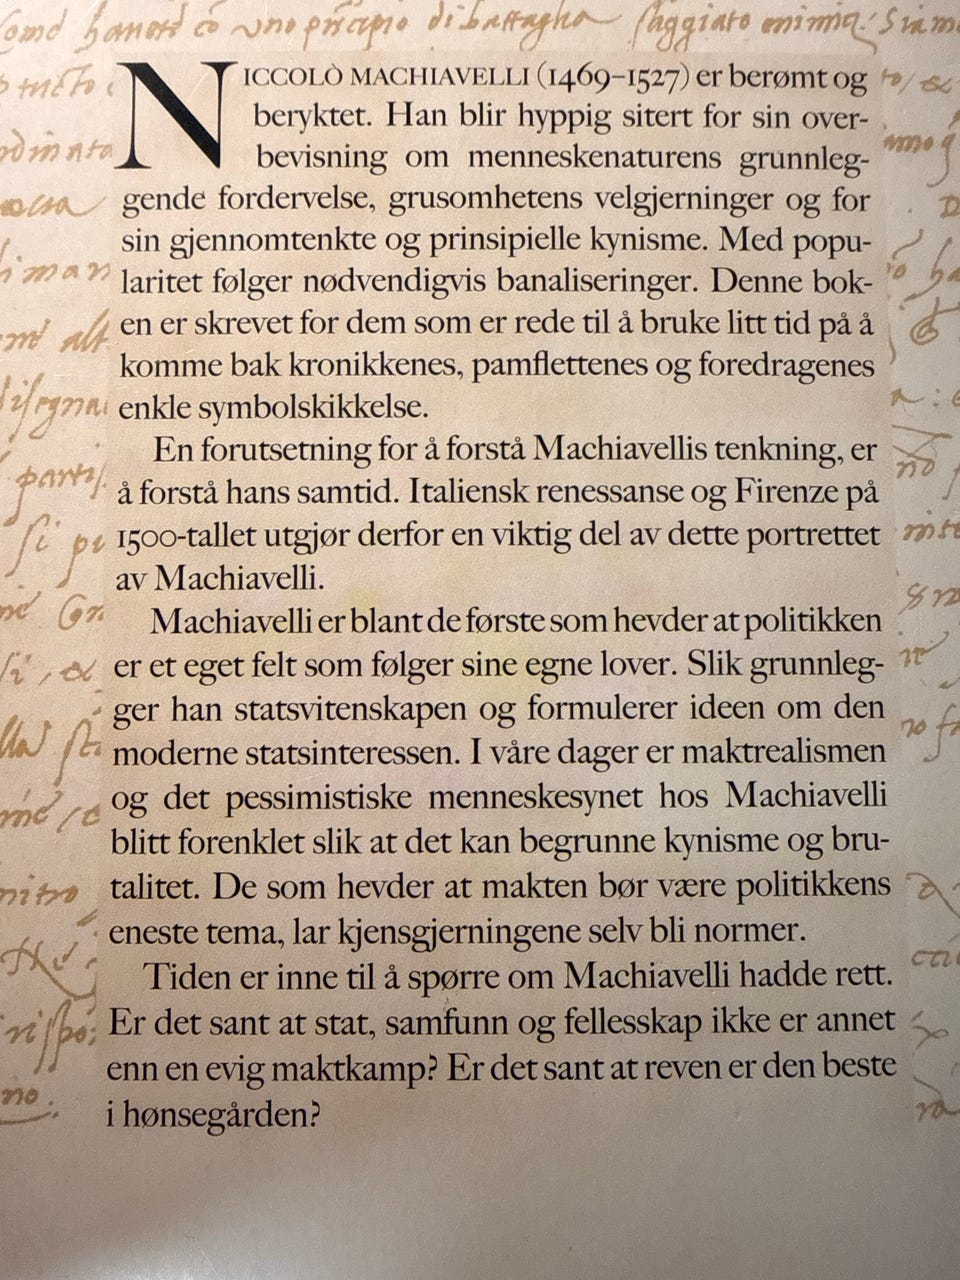 NICCOLÒ MACHIAVELLI (1469–1527) er berømt og
beryktet. Han blir hyppig sitert for sin over-
bevisning om menneskenaturens grunnleg-
gende fordervelse, grusomhetens velgjerninger og for
sin gjennomtenkte og prinsipielle kynisme. Med popu-
laritet følger nødvendigvis banaliseringer. Denne bok-
en er skrevet for dem som er rede til å bruke litt tid på å
komme bak kronikkenes, pamflettenes og foredragenes
enkle symbolskikkelse.
En forutsetning for å forstå Machiavellis tenkning, er
å forstå hans samtid. Italiensk renessanse og Firenze på
1500-tallet utgjør derfor en viktig del av dette portrettet
av Machiavelli.
Machiavelli er blant de første som hevder at politikken
er et eget felt som følger sine egne lover. Slik grunnleg-
ger han statsvitenskapen og formulerer ideen om den
moderne statsinteressen. I våre dager er maktrealismen
og det pessimistiske menneskesynet hos Machiavelli
blitt forenklet slik at det kan begrunne kynisme og bru-
talitet. De som hevder at makten bør være politikkens
eneste tema, lar kjensgjerningene selv bli normer.
Tiden er inne til å spørre om Machiavelli hadde rett.
Er det sant at stat, samfunn og fellesskap ikke er annet
enn en evig maktkamp? Er det sant at reven er den beste
i hønsegården?